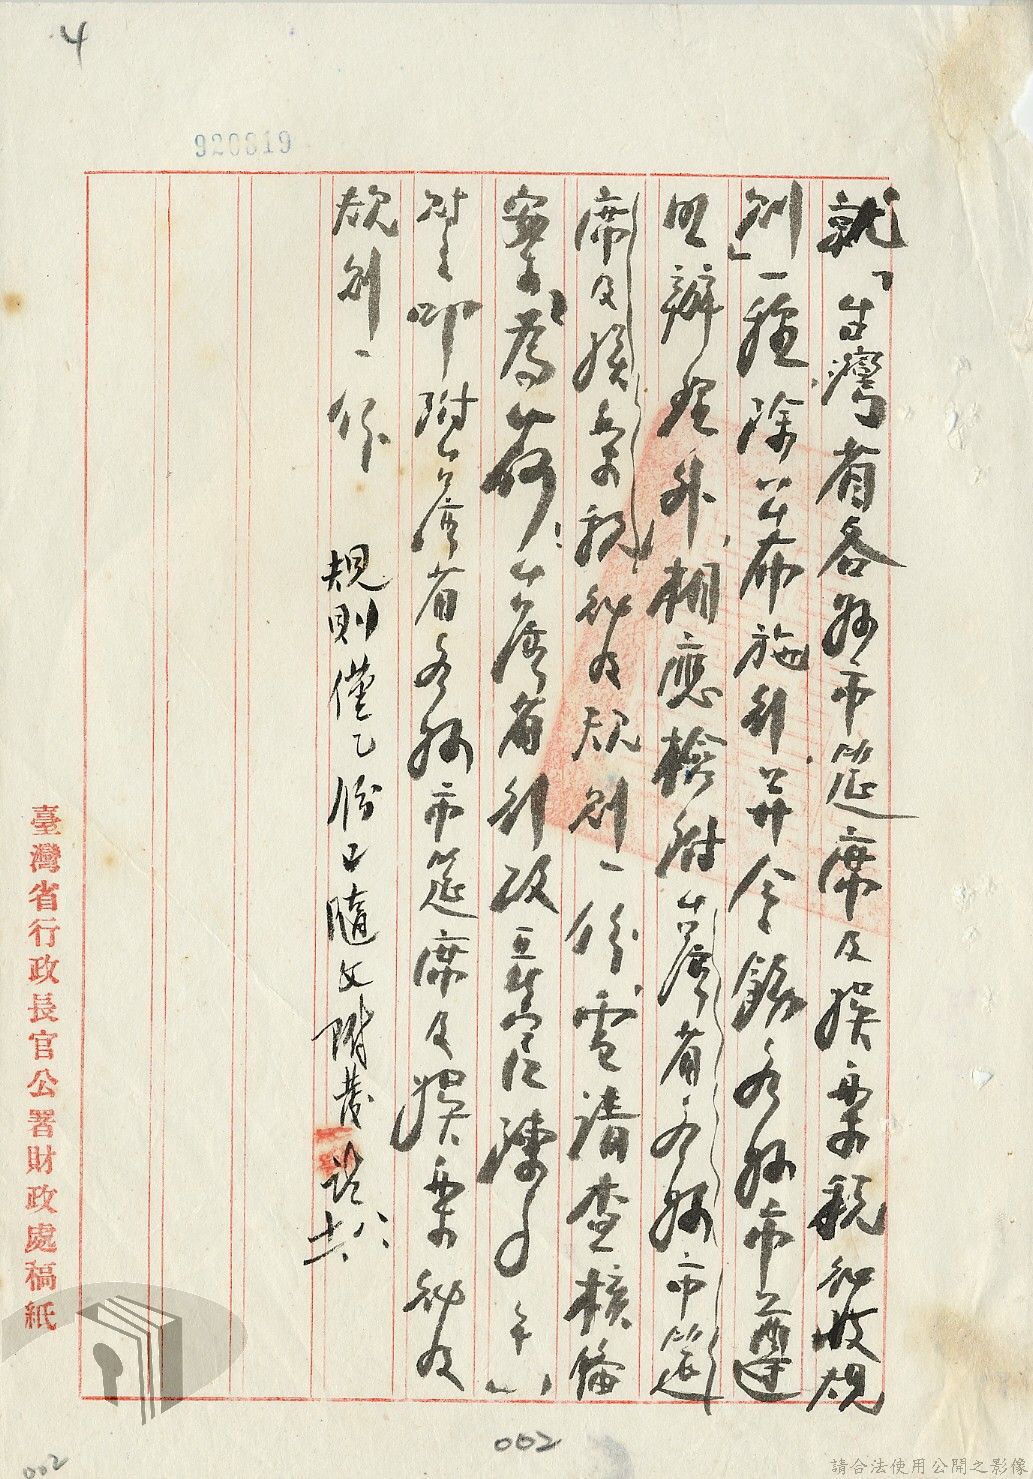 4
920819
就「台灣省各縣市筵席及娛樂稅征收規
則」一種除公布施行并令飭各縣市遵
照辦理外相應檢附台灣省各縣市筵
席及娛樂稅征收規則一份電請查核備
案為荷台灣省行政長官陳
財 印附台灣省各縣市筵席及娛樂征收
規則一份
規則僅乙份已隨文附發
臺灣省行政長官公署財政處稿紙
002
002
請合法使用公開之影像